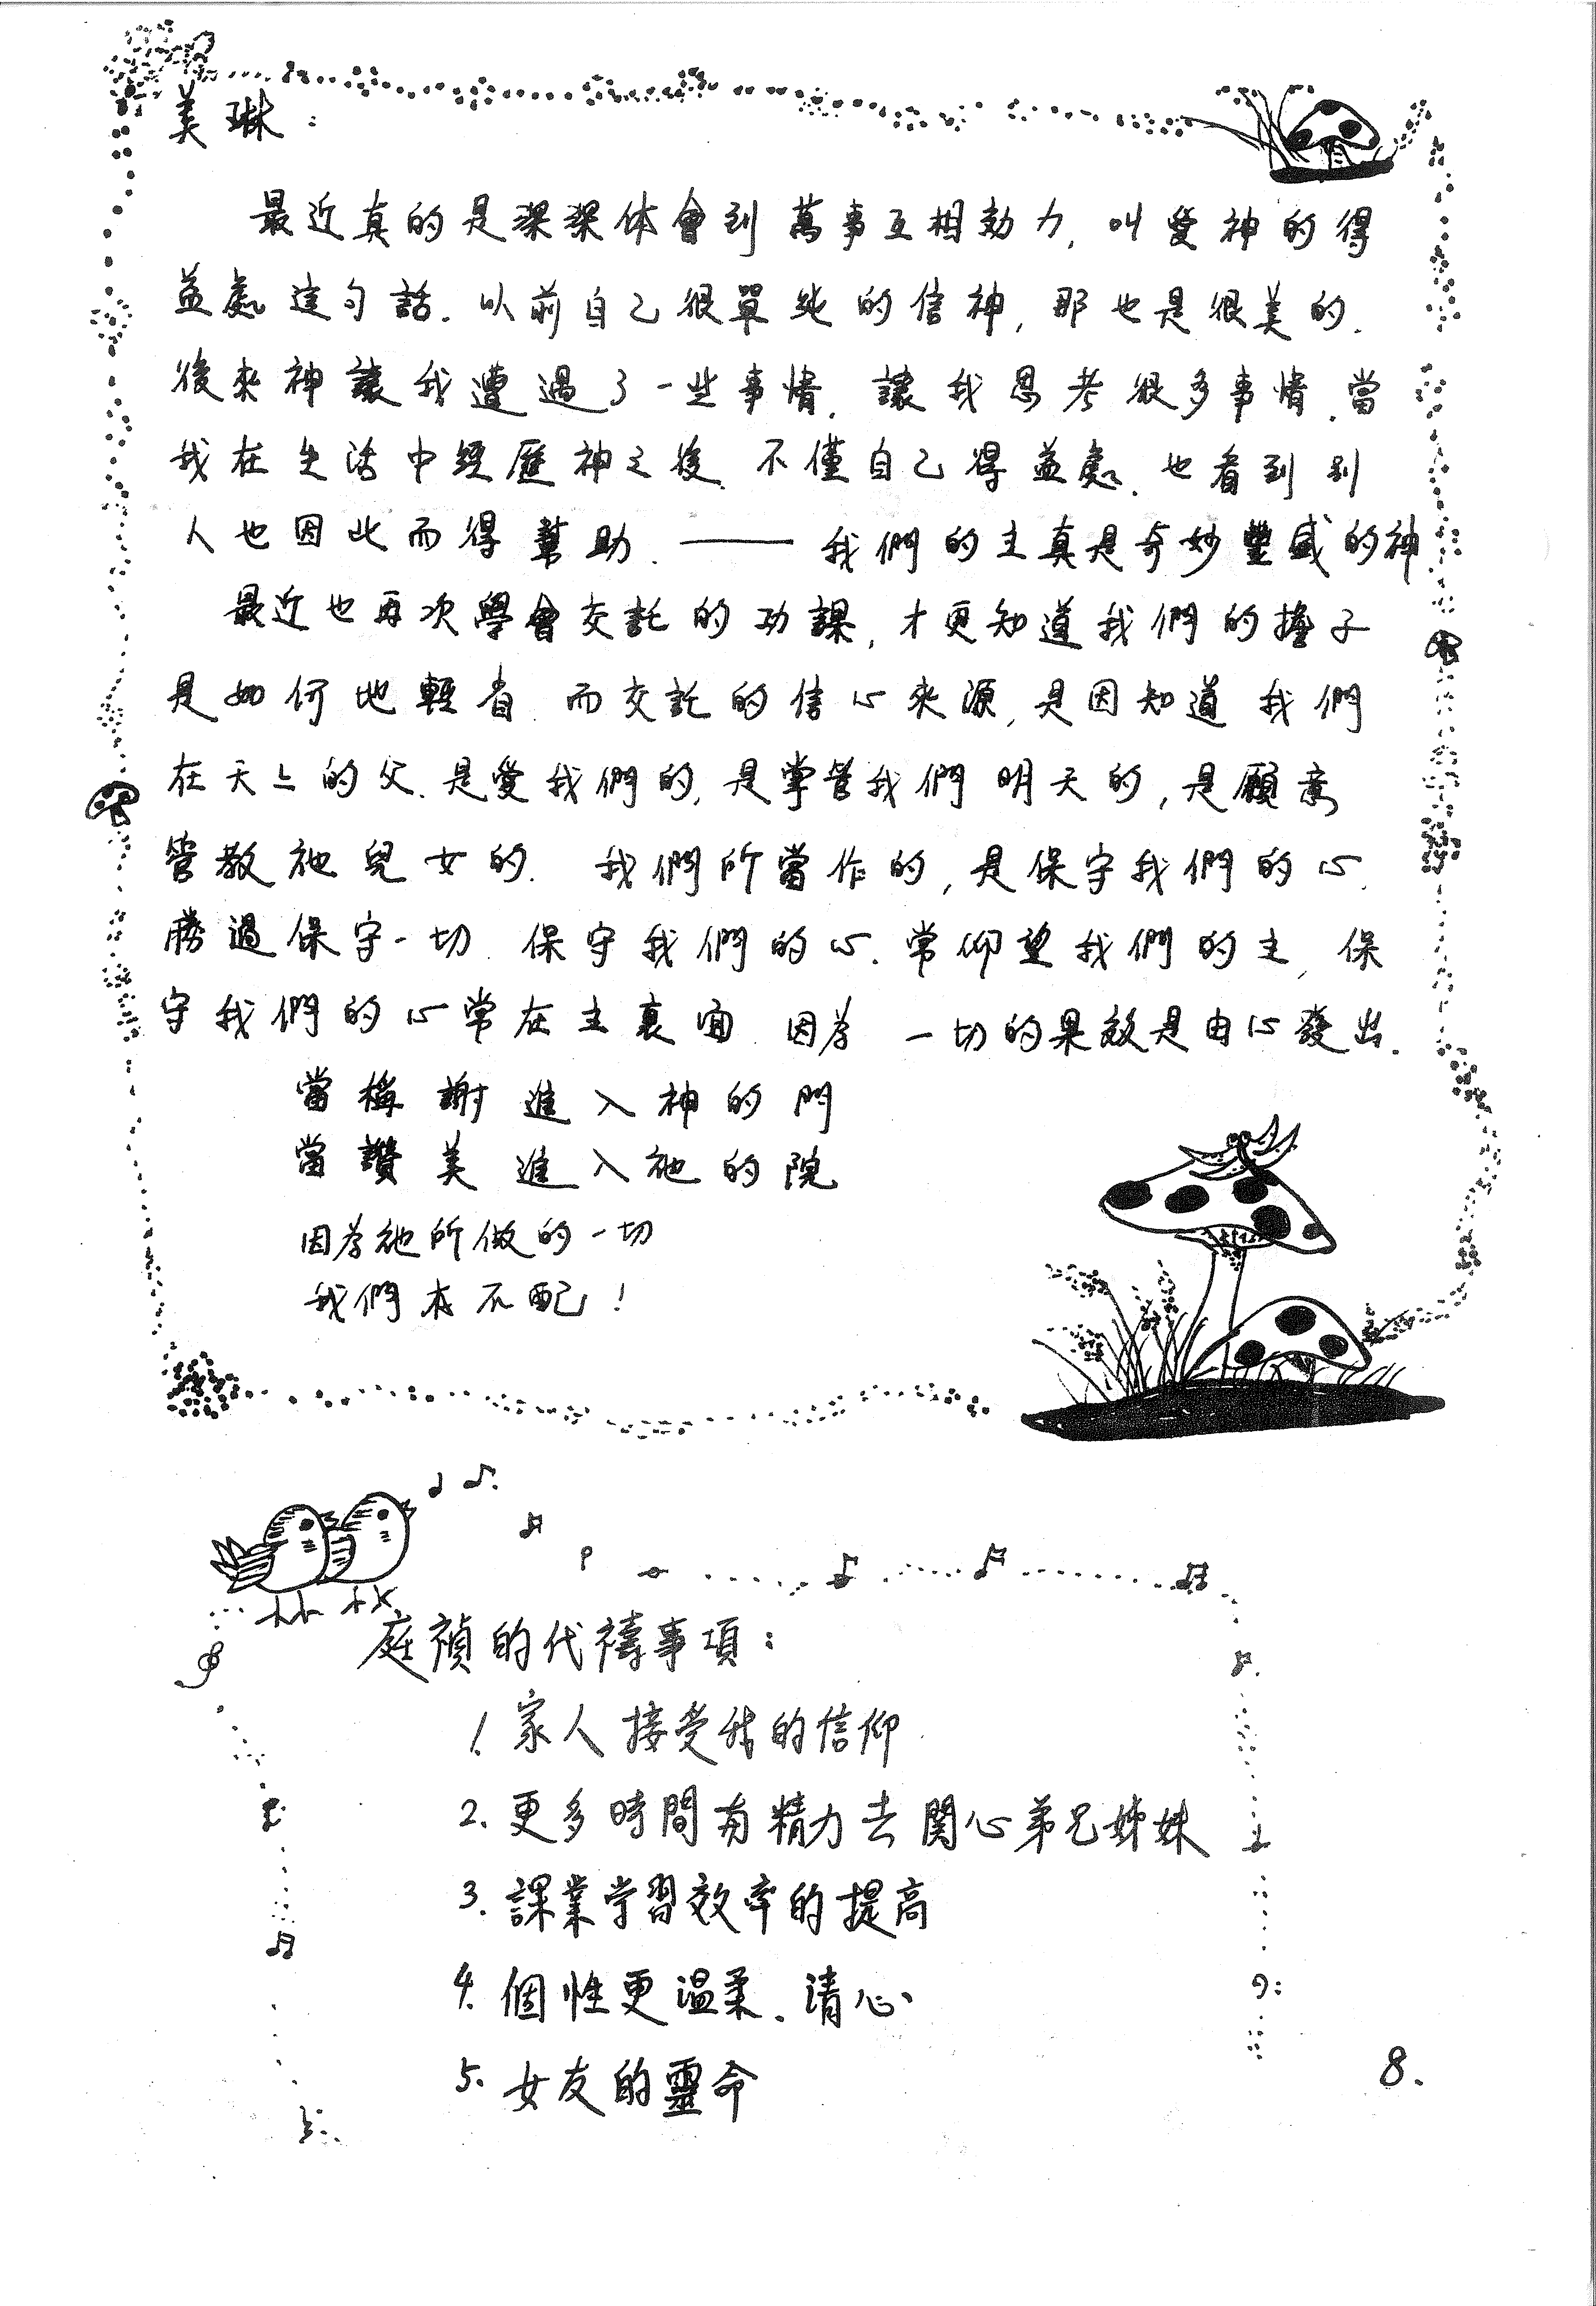 美琳：
最近真的是深深体會到萬事互相効力，叫愛神的得
益處這句話．以前自己很單純的信神，那也是很美的．
後來神讓我遭遇了一些事情．讓我思考很多事情．當
我在生活中經歷神之後．不僅自己得益處．也看到別
人也因此而得幫助．——我們的主真是奇妙豐盛的神
最近也再次學會交託的功課，才更知道我們的擔子
是如何地輕省．而交託的信心來源，是因知道我們
在天上的父．是愛我們的，是掌管我們明天的，是願意
管教祂兒女的．我們所當作的，是保守我們的心．
勝過保守一切．保守我們的心．常仰望我們的主，保
守我們的心常在主裏面．因為一切的果效是由心發出．
當稱謝進入神的門
當讚美進入祂的院
因為祂所做的一切
我們本不配！
庭禎的代禱事項：
1. 家人接受我的信仰
2. 更多時間有精力去関心弟兄姊妹
3. 課業学習效率的提高
4. 個性更溫柔．清心
5. 女友的靈命
8.